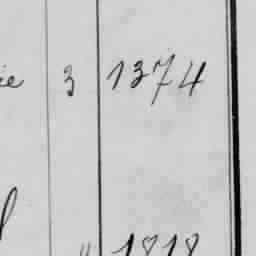 ie 3 1374
" 1818